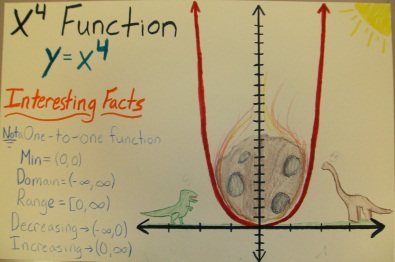 X⁴ Function
y=x⁴
Interesting Facts
Not One-to-one function
Min=(0,0)
Domain=(-∞,∞)
Range=[0,∞)
Decreasing→(-∞,0)
Increasing→(0,∞)